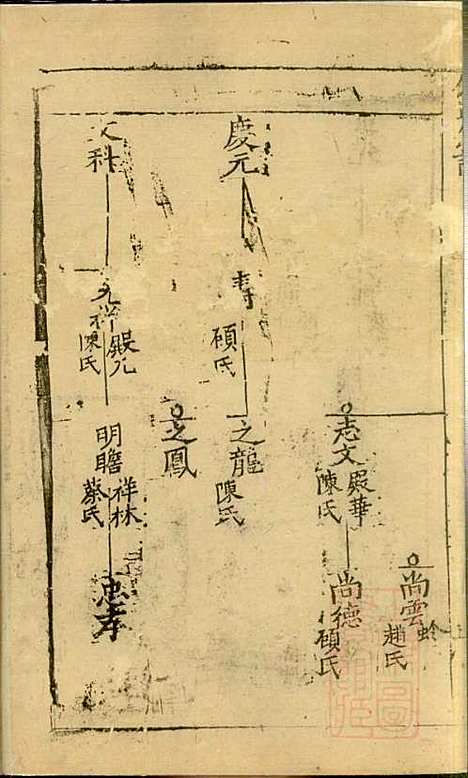 尚雲
蛉
趙氏
志文
殿華
陳氏
尚德
碩氏
慶元
壽
碩氏
之龍
陳氏
之鳳
文科
元祥
殿元
陳氏
明瞻
祥林
蔡氏
忠孝